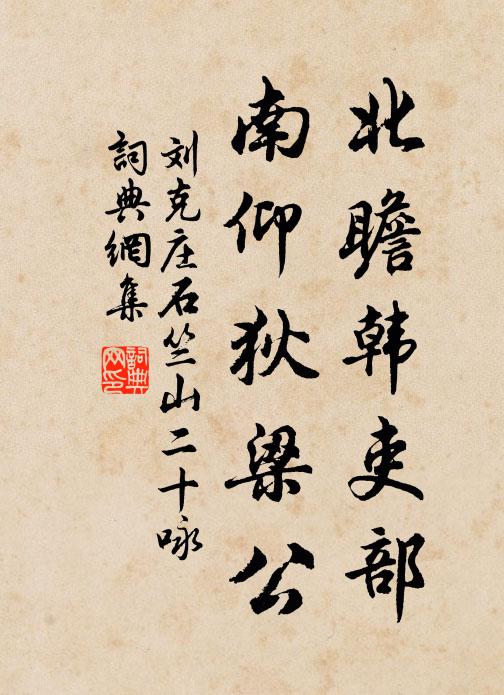 北瞻韩吏部
南仰狄梁公
刘克庄石竺山二十咏
詞典網集
詞典
网印